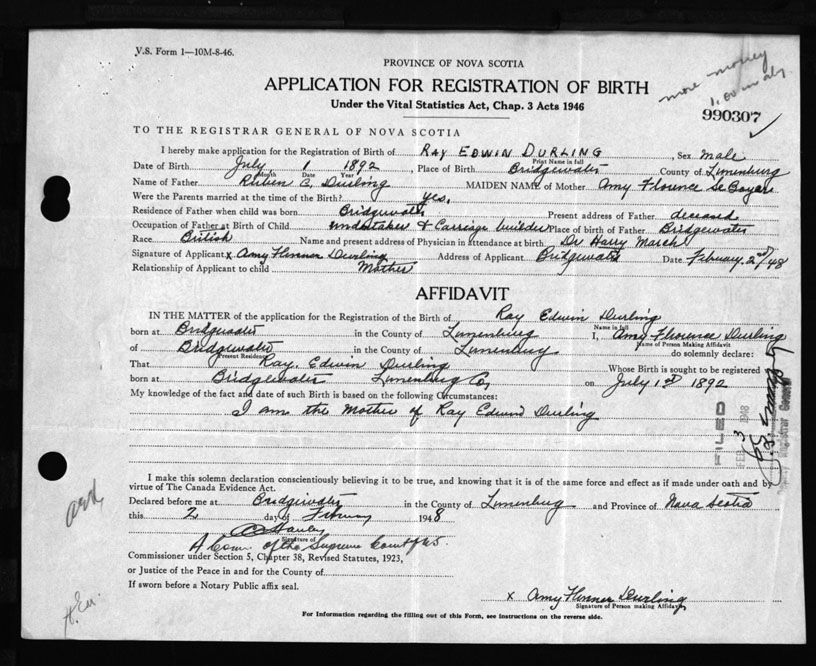 V.S. Form 1—10M-8-46.
PROVINCE OF NOVA SCOTIA
APPLICATION FOR REGISTRATION OF BIRTH
more money
Under the Vital Statistics Act, Chap. 3 Acts 1946
1.00 in
990307
TO THE REGISTRAR GENERAL OF NOVA SCOTIA
I hereby make application for the Registration of Birth of RAY EDWIN DURLING Sex male
Print Name in full
Date of Birth July 1 1892, Place of Birth Bridgewater County of Lunenburg
Month Date Year
Name of Father Ruben C. Durling MAIDEN NAME of Mother Amy Florence
Were the Parents married at the time of the Birth? yes.
Residence of Father when child was born Bridgewater Present address of Father deceased
Occupation of Father at Birth of Child undertaker & Carriage builder Place of birth of Father Bridgewater
Race British Name and present address of Physician in attendance at birth Dr Harry March
Signature of Applicant x Amy Durling Address of Applicant Bridgewater Date February 2nd/48
Relationship of Applicant to child Mother
AFFIDAVIT
IN THE MATTER of the application for the Registration of Birth of Ray Edwin Durling
Name in full
born at Bridgewater in the County of Lunenburg I, Amy Florence Durling
Name of Person Making Affidavit
of Bridgewater in the County of Lunenburg do solemnly declare:
Present Residence
That Ray. Edwin Durling Whose Birth is sought to be registered
born at Bridgewater Lunenburg Co, on July 1st 1892
My knowledge of the fact and date of such Birth is based on the following Circumstances:
I am the Mother of Ray Edwin Durling
FILED
FEB 3 1948
Deputy Registrar General
I make this solemn declaration conscientiously believing it to be true, and knowing that it is of the same force and effect as if made under oath and by
virtue of The Canada Evidence Act.
Declared before me at Bridgewater in the County of Lunenburg and Province of Nova Scotia
this 2 day of February 1948
Signature of
A Com. of the Supreme Court of N.S.
Commissioner under Section 5, Chapter 38, Revised Statutes, 1923,
or Justice of the Peace in and for the County of
If sworn before a Notary Public affix seal.
x Amy Durling
Signature of Person making Affidavit
For Information regarding the filling out of this Form, see instructions on the reverse side.